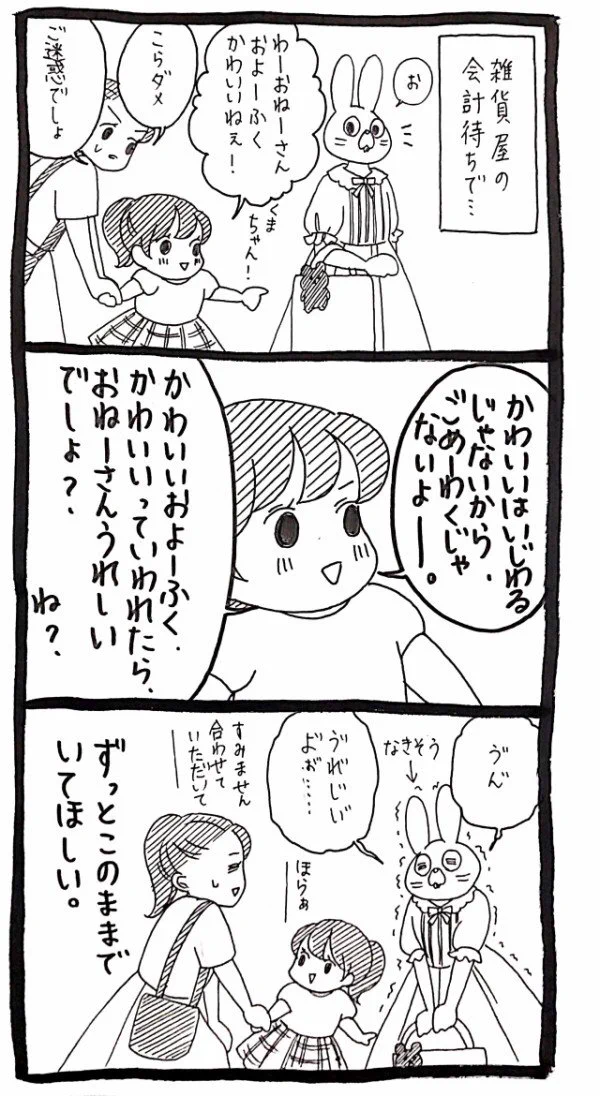 雑貨屋の
会計待ちで…
お
わーおねーさん
およーふく
かわいいねぇ!
くま
ちゃん!
こらダメ
ご迷惑でしょ
かわいいはいじわる
じゃないから、
ごめーわくじゃ
ないよー。
かわいいおよーふく、
かわいいっていわれたら、
おねーさんうれしい
でしょ?、
ね?、
ゔん
なきそう
ゔれじい
よぉ゛……
ほらぁ
すみません
合わせて
いただいて
ずっとこのままで
いてほしい。